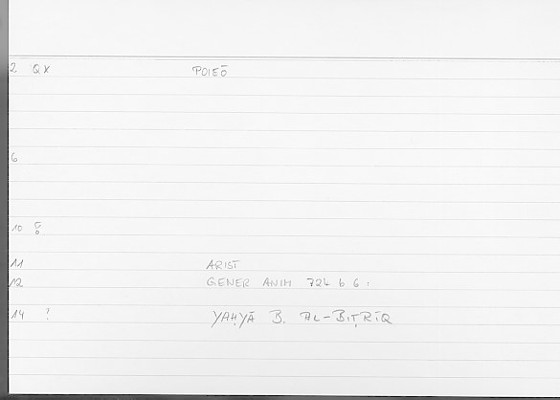 2 QX POIEŌ
6
10
11 ARIST
12 GENER ANIM 724 b 6
14 ? YAḤYĀ B. AL-BIṬRĪQ